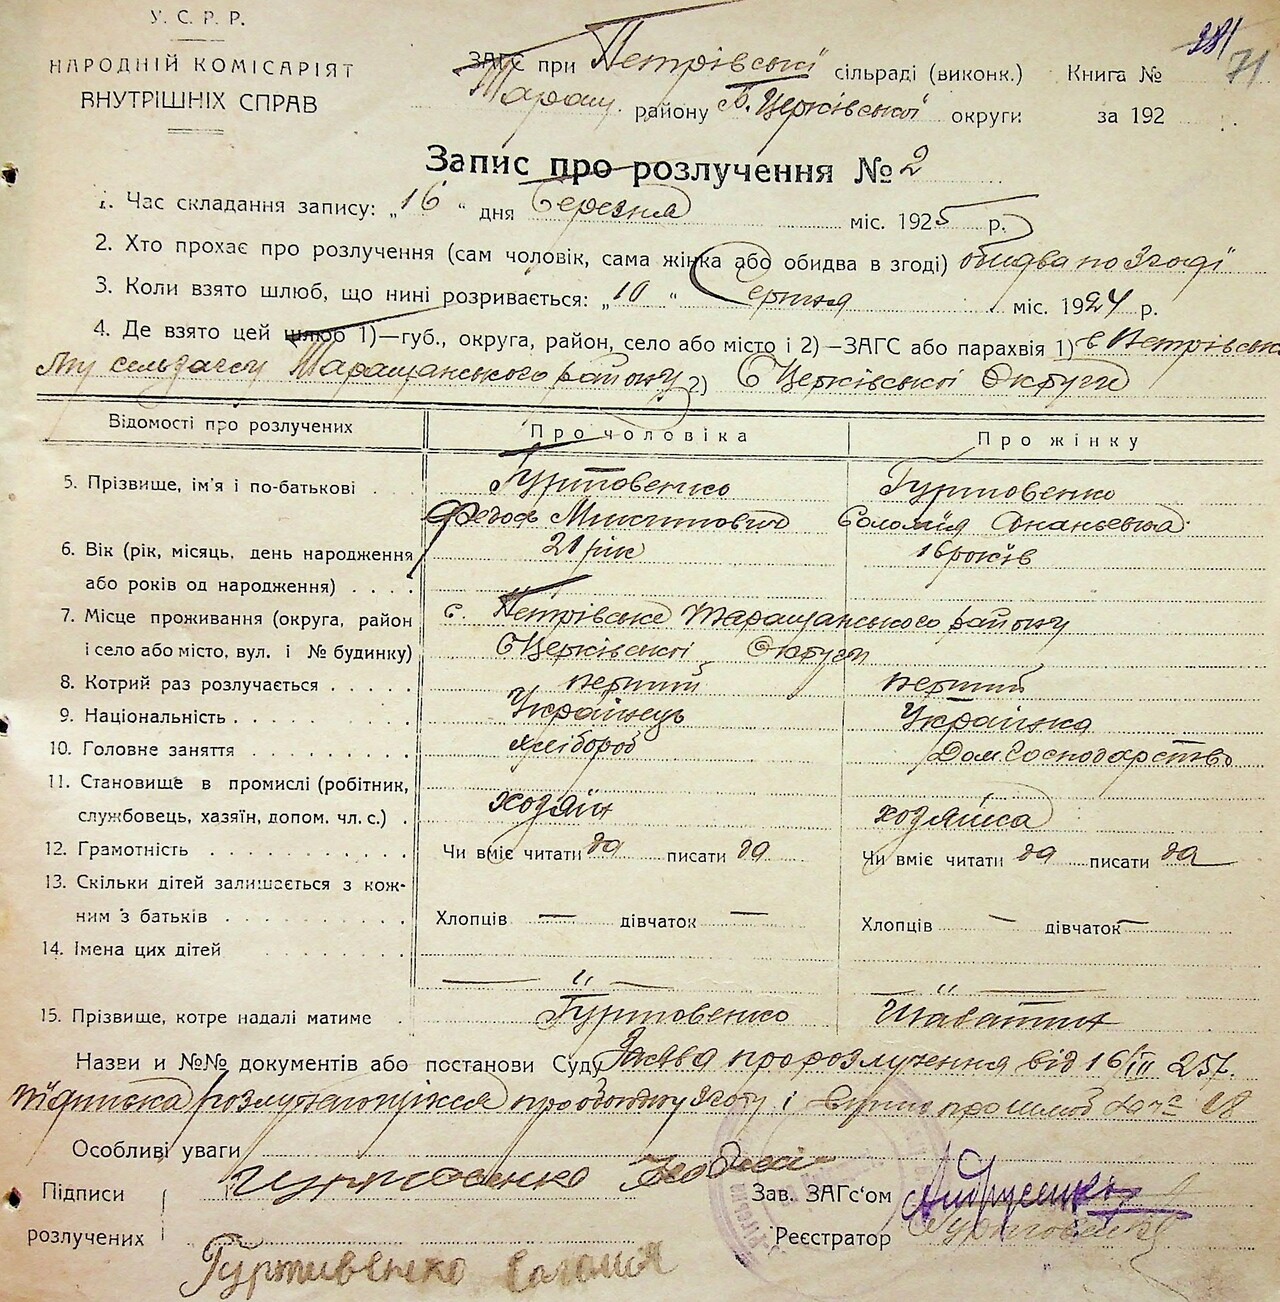 У. С. Р. Р.
НАРОДНІЙ КОМІСАРІЯТ
ВНУТРІШНІХ СПРАВ
381
71
ЗАГС при Петрівські сільраді (виконк.) Книга №
Таращ. району Б. Церківської округи за 192
Запис про розлучення № 2
1. Час складання запису: „16" дня Березня міс. 1925 р.
2. Хто прохає про розлучення (сам чоловік, сама жінка або обидва в згоді) обидва по згоді
3. Коли взято шлюб, що нині розривається: „10" Серпня міс. 1924 р.
4. Де взято цей шлюб 1)—губ., округа, район, село або місто і 2)—ЗАГС або парахвія 1) с Петрівськ
Таращанського району 2) Б Церківської Округи
Відомості про розлучених Про чоловіка Про жінку
5. Прізвище, ім'я і по-батькові Гуртовенко Гуртовенко
Федось Соломія Ананьевна
6. Вік (рік, місяць, день народження 21 рік 16 років
або років од народження)
7. Місце проживання (округа, район с. Петрівське Таращанського району
і село або місто, вул. і № будинку) Б Церківської Округи
8. Котрий раз розлучається перший перший
9. Національність Українець Українка
10. Головне заняття хлібороб Дом. Господарство
11. Становище в промислі (робітник,
службовець, хазяїн, допом. чл. с.) ходяїн ходяйка
12. Грамотність Чи вміє читати да писати да Чи вміє читати да писати да
13. Скільки дітей залишається з кож-
ним з батьків Хлопців — дівчаток — Хлопців — дівчаток —
14. Імена цих дітей
— „ — — „ —
15. Прізвище, котре надалі матиме Гуртовенко
Назви и №№ документів або постанови Суду Заява про розлучення від 16/III 25 г.
Підписка розлучающихся про і
Особливі уваги
Підписи Гуртовенко Зав. ЗАГс'ом Андрусенко
розлучених Реєстратор
Гуртивенко Соломія